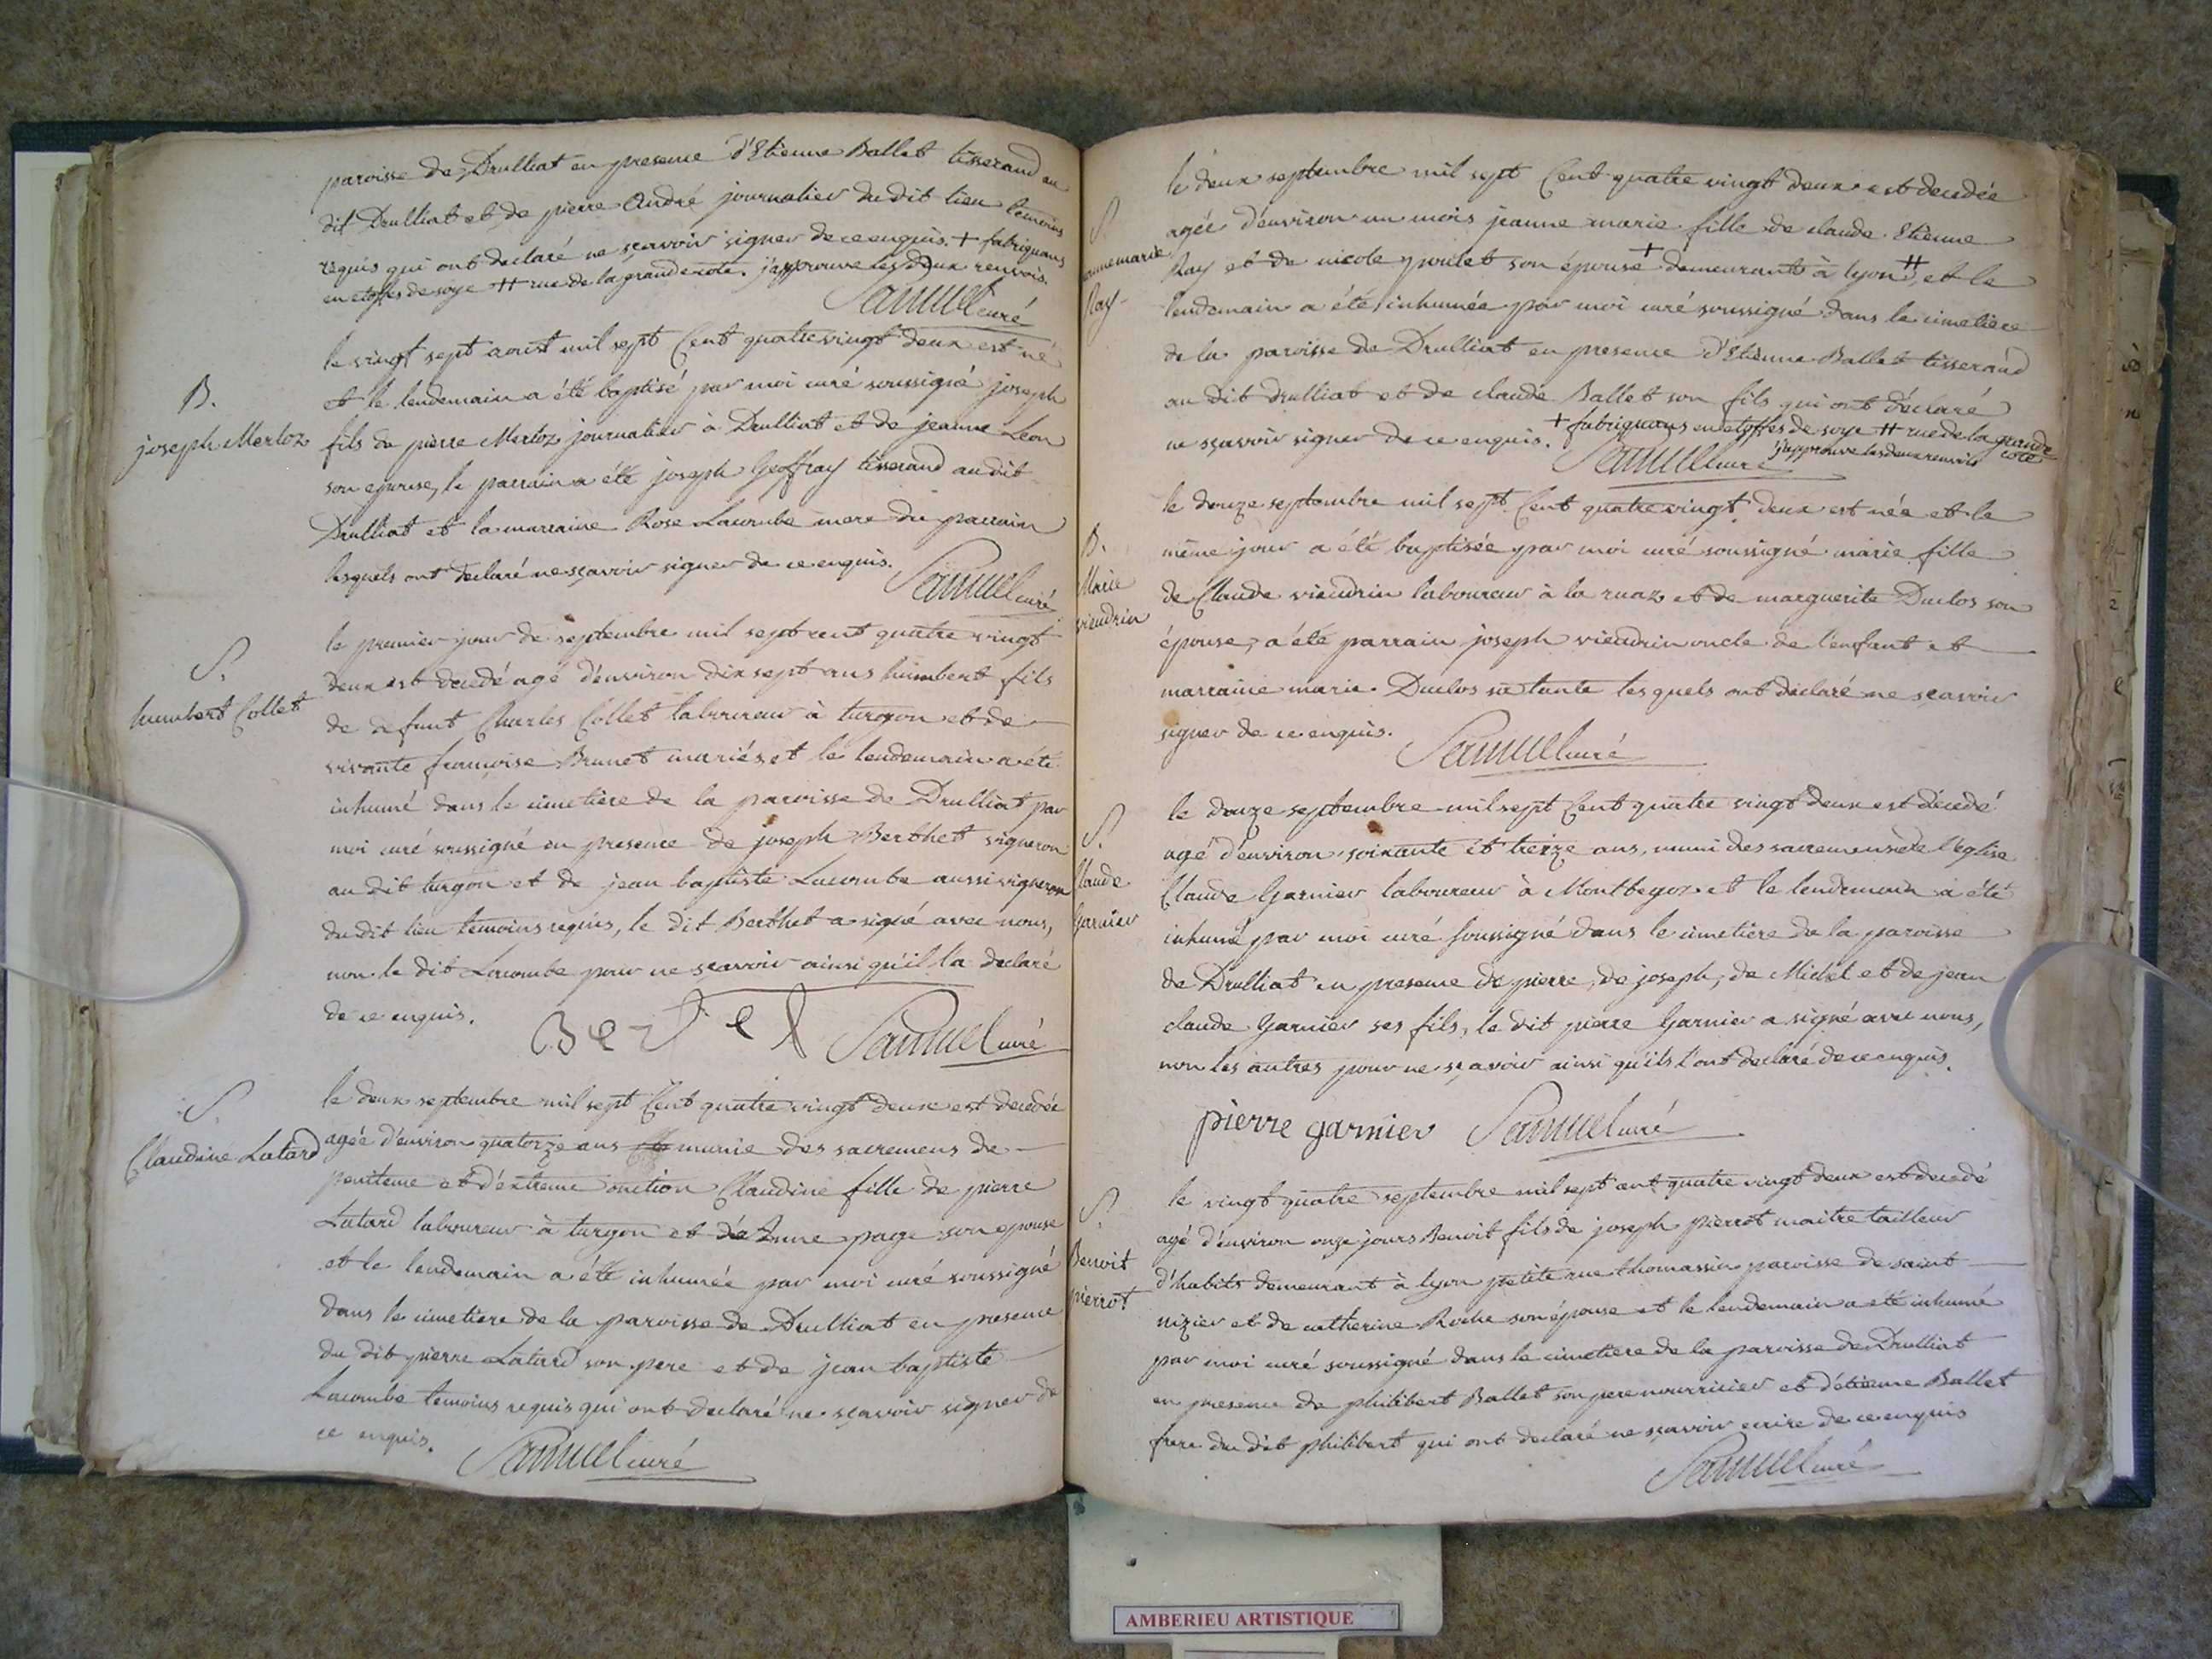 paroisse de Drulliat en presence d'Etienne Ballet tisserand au
dit Drulliat et de pierre André journalier du dit lieu temoins
requis qui ont declaré ne sçavoir signer de ce enquis. + fabriquans
en etoffes de soye ++ rue de la grande cote. j'approuve les deux renvois.
Samuel curé
B.
joseph Mertoz
le vingt sept aoust mil sept Cent quatre vingt deux est né
et le lendemain a été baptisé par moi curé soussigné joseph
fils de pierre Mertoz journalier à Drulliat et de jeanne Leon
son epouse, le parrain a été joseph Geoffray tisserand au dit
Drulliat et la marraine Rose Lacombe mere du parrain
lesquels ont declaré ne sçavoir signer de ce enquis.
Samuel curé
S.
humbert Collet
le premier jour de septembre mil sept cent quatre vingt
deux est decedé agé d'environ dix sept ans humbert fils
de defunt Charles Collet laboureur à turgon et de
vivante françoise Brunet mariés et le lendemain a été
inhumé dans le cimetiere de la paroisse de Drulliat par
moi curé soussigné en presence de joseph Berthet vigneron
au dit turgon et de jean baptiste Lacombe aussi vigneron
du dit lieu temoins requis, le dit Berthet a signé avec nous,
non le dit Lacombe pour ne sçavoir ainsi qu'il l'a declaré
de ce enquis.
Samuel curé
S.
Claudine Latard
le deux septembre mil sept Cent quatre vingt deux est decedée
agée d'environ quatorze ans munie des sacremens de
penitence et d'extreme onction Claudine fille de pierre
Latard laboureur à turgon et de Anne page son epouse
et le lendemain a été inhumée par moi curé soussigné
dans le cimetiere de la paroisse de Drulliat en presence
du dit pierre Latard son pere et de jean baptiste
Lacombe temoins requis qui ont declaré ne sçavoir signer de
ce enquis.
Samuel curé
S
jeanne marie
Ray
le deux septembre mil sept Cent quatre vingt deux est decedée
agée d'environ un mois jeanne marie fille de claude Etienne
Ray et de nicole poulet son épouse + demeurants à lyon ++, et le
lendemain a été inhumée par moi curé soussigné dans le cimetiere
de la paroisse de Drulliat en presence d'Etienne Ballet tisserand
au dit drulliat et de claude Ballet son fils qui ont déclaré
ne sçavoir signer de ce enquis. + fabriquans en etoffes de soye ++ rue de la grande
cote
j'approuve les deux renvois
Samuel curé
B.
Marie
vieudrin
le douze septembre mil sept Cent quatre vingt deux est née et le
même jour a été baptisée par moi curé soussigné marie fille
de Claude vieudrin laboureur à la ruaz et de marguerite Duclos son
épouse, a été parrain joseph vieudrin oncle de l'enfant et
marraine marie Duclos sa tante lesquels ont déclaré ne sçavoir
signer de ce enquis.
Samuel curé
S.
Claude
Garnier
le douze septembre mil sept Cent quatre vingt deux est decedé
agé d'environ soixante et treize ans, muni des sacremens de l'eglise
Claude Garnier laboureur à Montbegoz et le lendemain a été
inhumé par moi curé soussigné dans le cimetiere de la paroisse
de Drulliat en presence de pierre, de joseph, de Michel et de jean
claude Garnier ses fils, le dit pierre Garnier a signé avec nous,
non les autres pour ne sçavoir ainsi qu'ils l'ont declaré de ce enquis.
pierre garnier Samuel curé
S.
Benoit
pierrot
le vingt quatre septembre mil sept cent quatre vingt deux est decedé
agé d'environ onze jours Benoit fils de joseph pierrot maitre tailleur
d'habits demeurant à lyon petite rue thomassin paroisse de saint
nizier et de catherine Roche son épouse et le lendemain a été inhumé
par moi curé soussigné dans le cimetiere de la paroisse de Drulliat
en presence de philibert Ballet son pere nourricier et d'étienne Ballet
frere du dit philibert qui ont declaré ne sçavoir ecrire de ce enquis
Samuel curé
AMBERIEU ARTISTIQUE